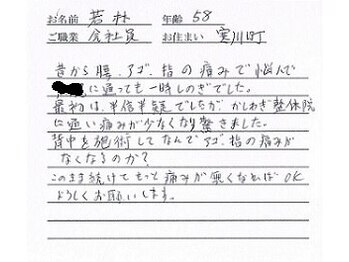 お名前 若林 年齢 58
ご職業 会社員 お住まい 寒川町
昔から腰、アゴ、指の痛みで悩んで
に通っても一時しのぎでした。
最初は、半信半疑でしたが、かしわぎ整体院
に通い痛みが少なくなり驚きました。
背中を施術してなんでアゴ、指の痛みが
なくなるのか?
このまま続けてもっと痛みが無くなればOK
よろしくお願いします。